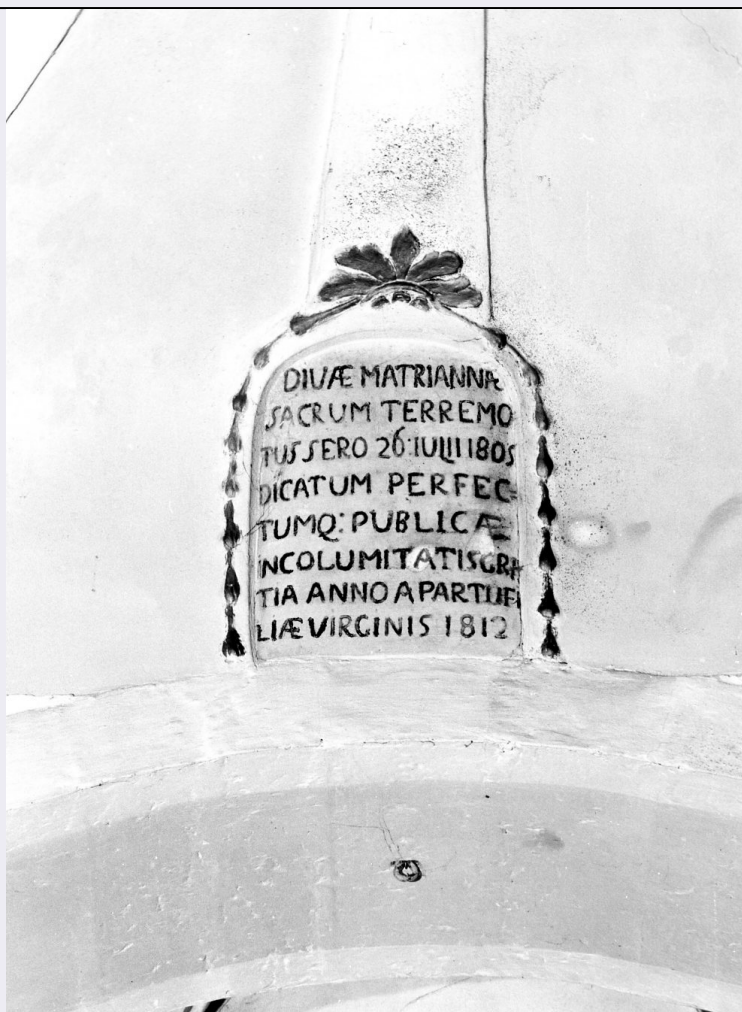 DIUÆ MATRIANNÆ
SACRUM TERREMO
TUS SERO 26: IULII 1805
DICATUM PERFEC=
TUMQ: PUBLICÆ
INCOLUMITATIS GRA
TIA ANNO A PARTU FI
LIÆ VIRGINIS 1812